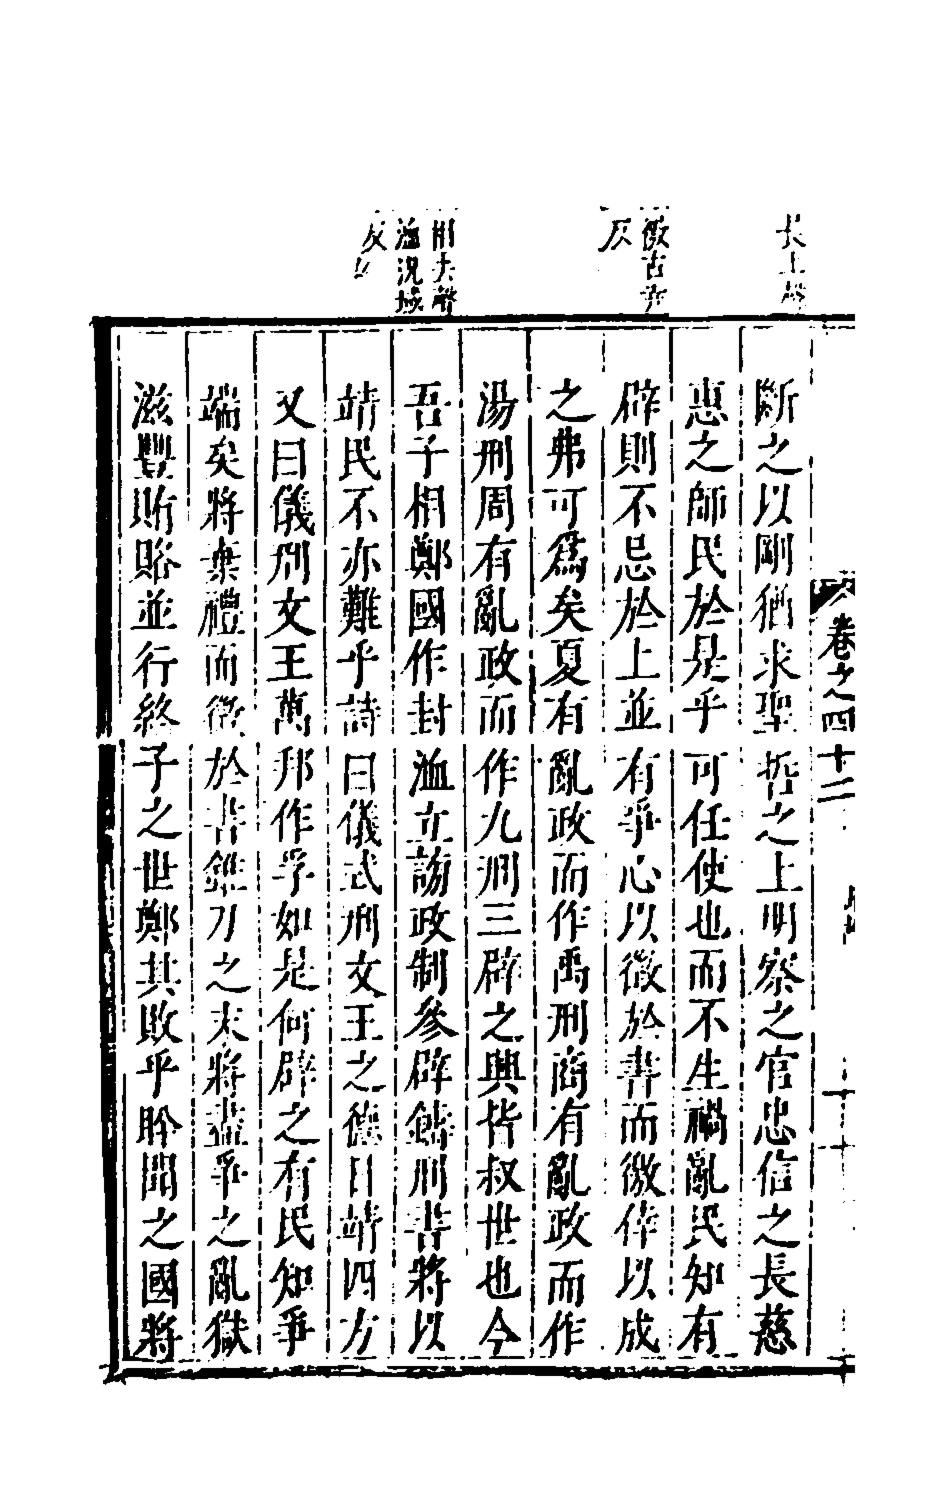 長上聲
徼古堯
反
相去聲
洫況域
反
卷之四十二
斷之以剛猶求聖哲之上明察之官忠信之長慈
惠之師民於是乎可任使也而不生禍亂民知有
辟則不忌於上並有爭心以徵於書而徼倖以成
之弗可爲矣夏有亂政而作禹刑商有亂政而作
湯刑周有亂政而作九刑三辟之興皆叔世也今
吾子相鄭國作封洫立謗政制參辟鑄刑書將以
靖民不亦難乎詩曰儀式刑文王之德日靖四方
又曰儀刑文王萬邦作孚如是何辟之有民知爭
端矣將棄禮而徵於書錐刀之末將盡爭之亂獄
滋豐賄賂並行終子之世鄭其敗乎肸聞之國將